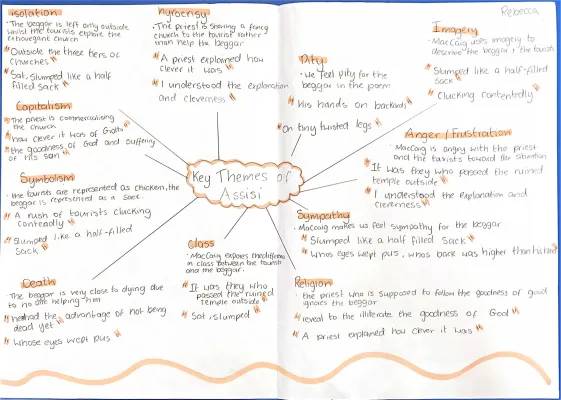 Rebecca
isolation
• The beggar is left only outside
whilst the tourists explore the
extravegant church
" Outside the three tiers of
churches "
" Sat, Slumped like a half
filled sack "
hypocrisy
• The priest is showing a fancy
church to the tourist rather
than help the beggar
" A priest explained how
clever it was "
" I understood the explanation
and cleverness "
Pity
• We feel pity for the
beggar in the poem
" His hands on backwards "
" On tiny twisted legs "
Imagery
• MacCaig uses imagery to
describe the beggar & the tourists
" Slumped like a half-filled
sack "
" Clucking contentedly "
Capitalism
• The priest is commercialising
the church
" how clever it was of Giotto "
" the goodness of God and suffering
of His son "
Anger / Frustration
• MacCaig is angry with the priest
and the tourists toward the situation
" It was they who passed the ruined
temple outside "
" I understood the explanation and
cleverness "
Key Themes of
Assisi
Symbolism
• the tourists are represented as chicken, the
beggar is represented as a sack.
" A rush of tourists clucking
contendly "
" Slumped like a half-filled
sack "
Sympathy
• MacCaig makes us feel sympathy for the beggar
" Slumped like a half filled sack "
" Whos eyes wept pus, whos back was higher than his head "
Class
• MacCaig exposes the difference
in class between the tourists
and the beggar.
" It was they who
passed the ruined
temple outside "
" Sat slumped "
Death
The beggar is very close to dying due
to no one helping him
" he had the advantage of not being
dead yet "
" Whose eyes wept pus "
Religion
• the priest who is supposed to follow the goodness of god
ignores the beggar
" reveal to the illiterate the goodness of God "
" A priest explained how clever it was "